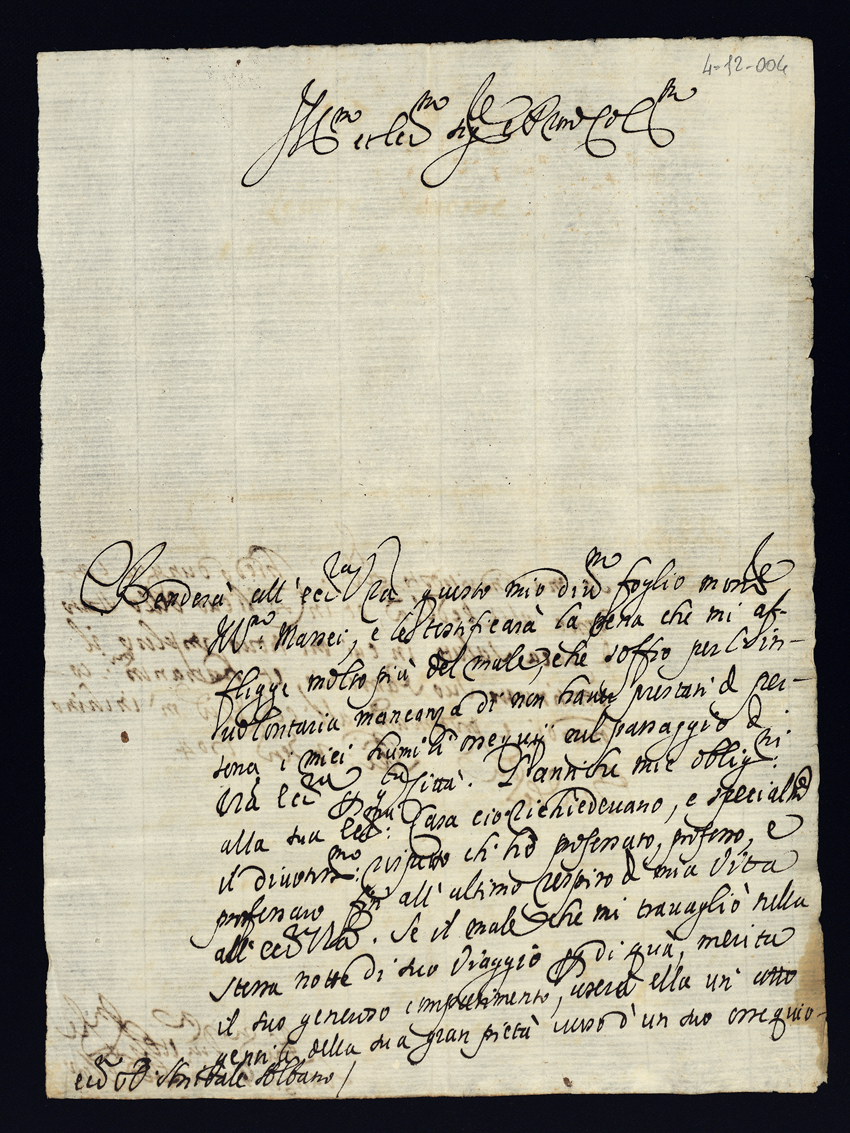 4-12-004
Ill.mo et Ecc.mo Sig.re e P.ron Col.mo
Renderà all' Ecc.za V.ra questo mio div.mo foglio mons.re
Ill.mo Mansi, e le testificarà la pena che mi af-
fligge molto più del male, che soffro per l'in-
volontaria mancanza di non haver prestati di per-
sona i miei humil.mi ossequij nel passaggio di
V.ra Ecc.za p q.ta Città. L'antiche mie oblig.ni
alla sua Ecc.ma Casa ciò richiedevano, e special.te
il divotiss.mo rispetto ch' hò professato, professo, e
professarò fin' all' ultimo respiro di mia Vita
all' Ecc.za V.ra. Se il male che mi travagliò nella
stessa notte di suo Viaggio p di quà, merita
il suo generoso compatimento, userà ella un' atto
gentile della sua gran pietà verso d' un suo ossequio-
Ecc.mo D. Annibale Albano /